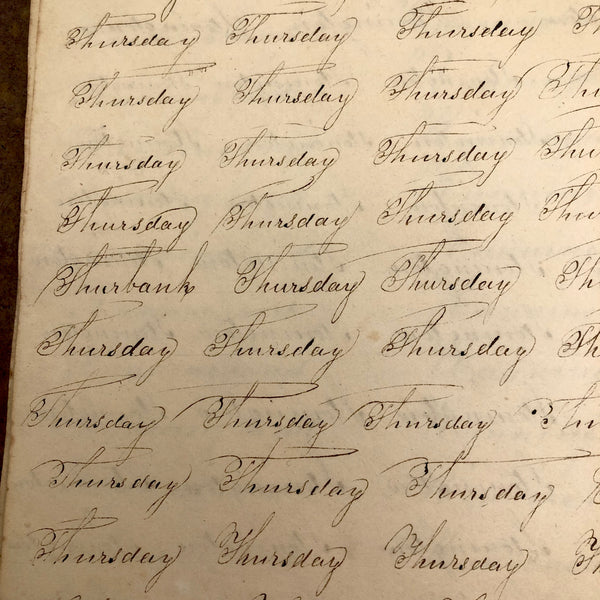 Thursday Thursday Thursday Th
Thursday Thursday Thursday Thu
Thursday Thursday Thursday Thu
Thursday Thursday Thursday Thur
Thurbank Thursday Thursday Th
Thursday Thursday Thursday Th
Thursday Thursday Thursday Thu
Thursday Thursday Thursday
Thursday Thursday Thursday Th